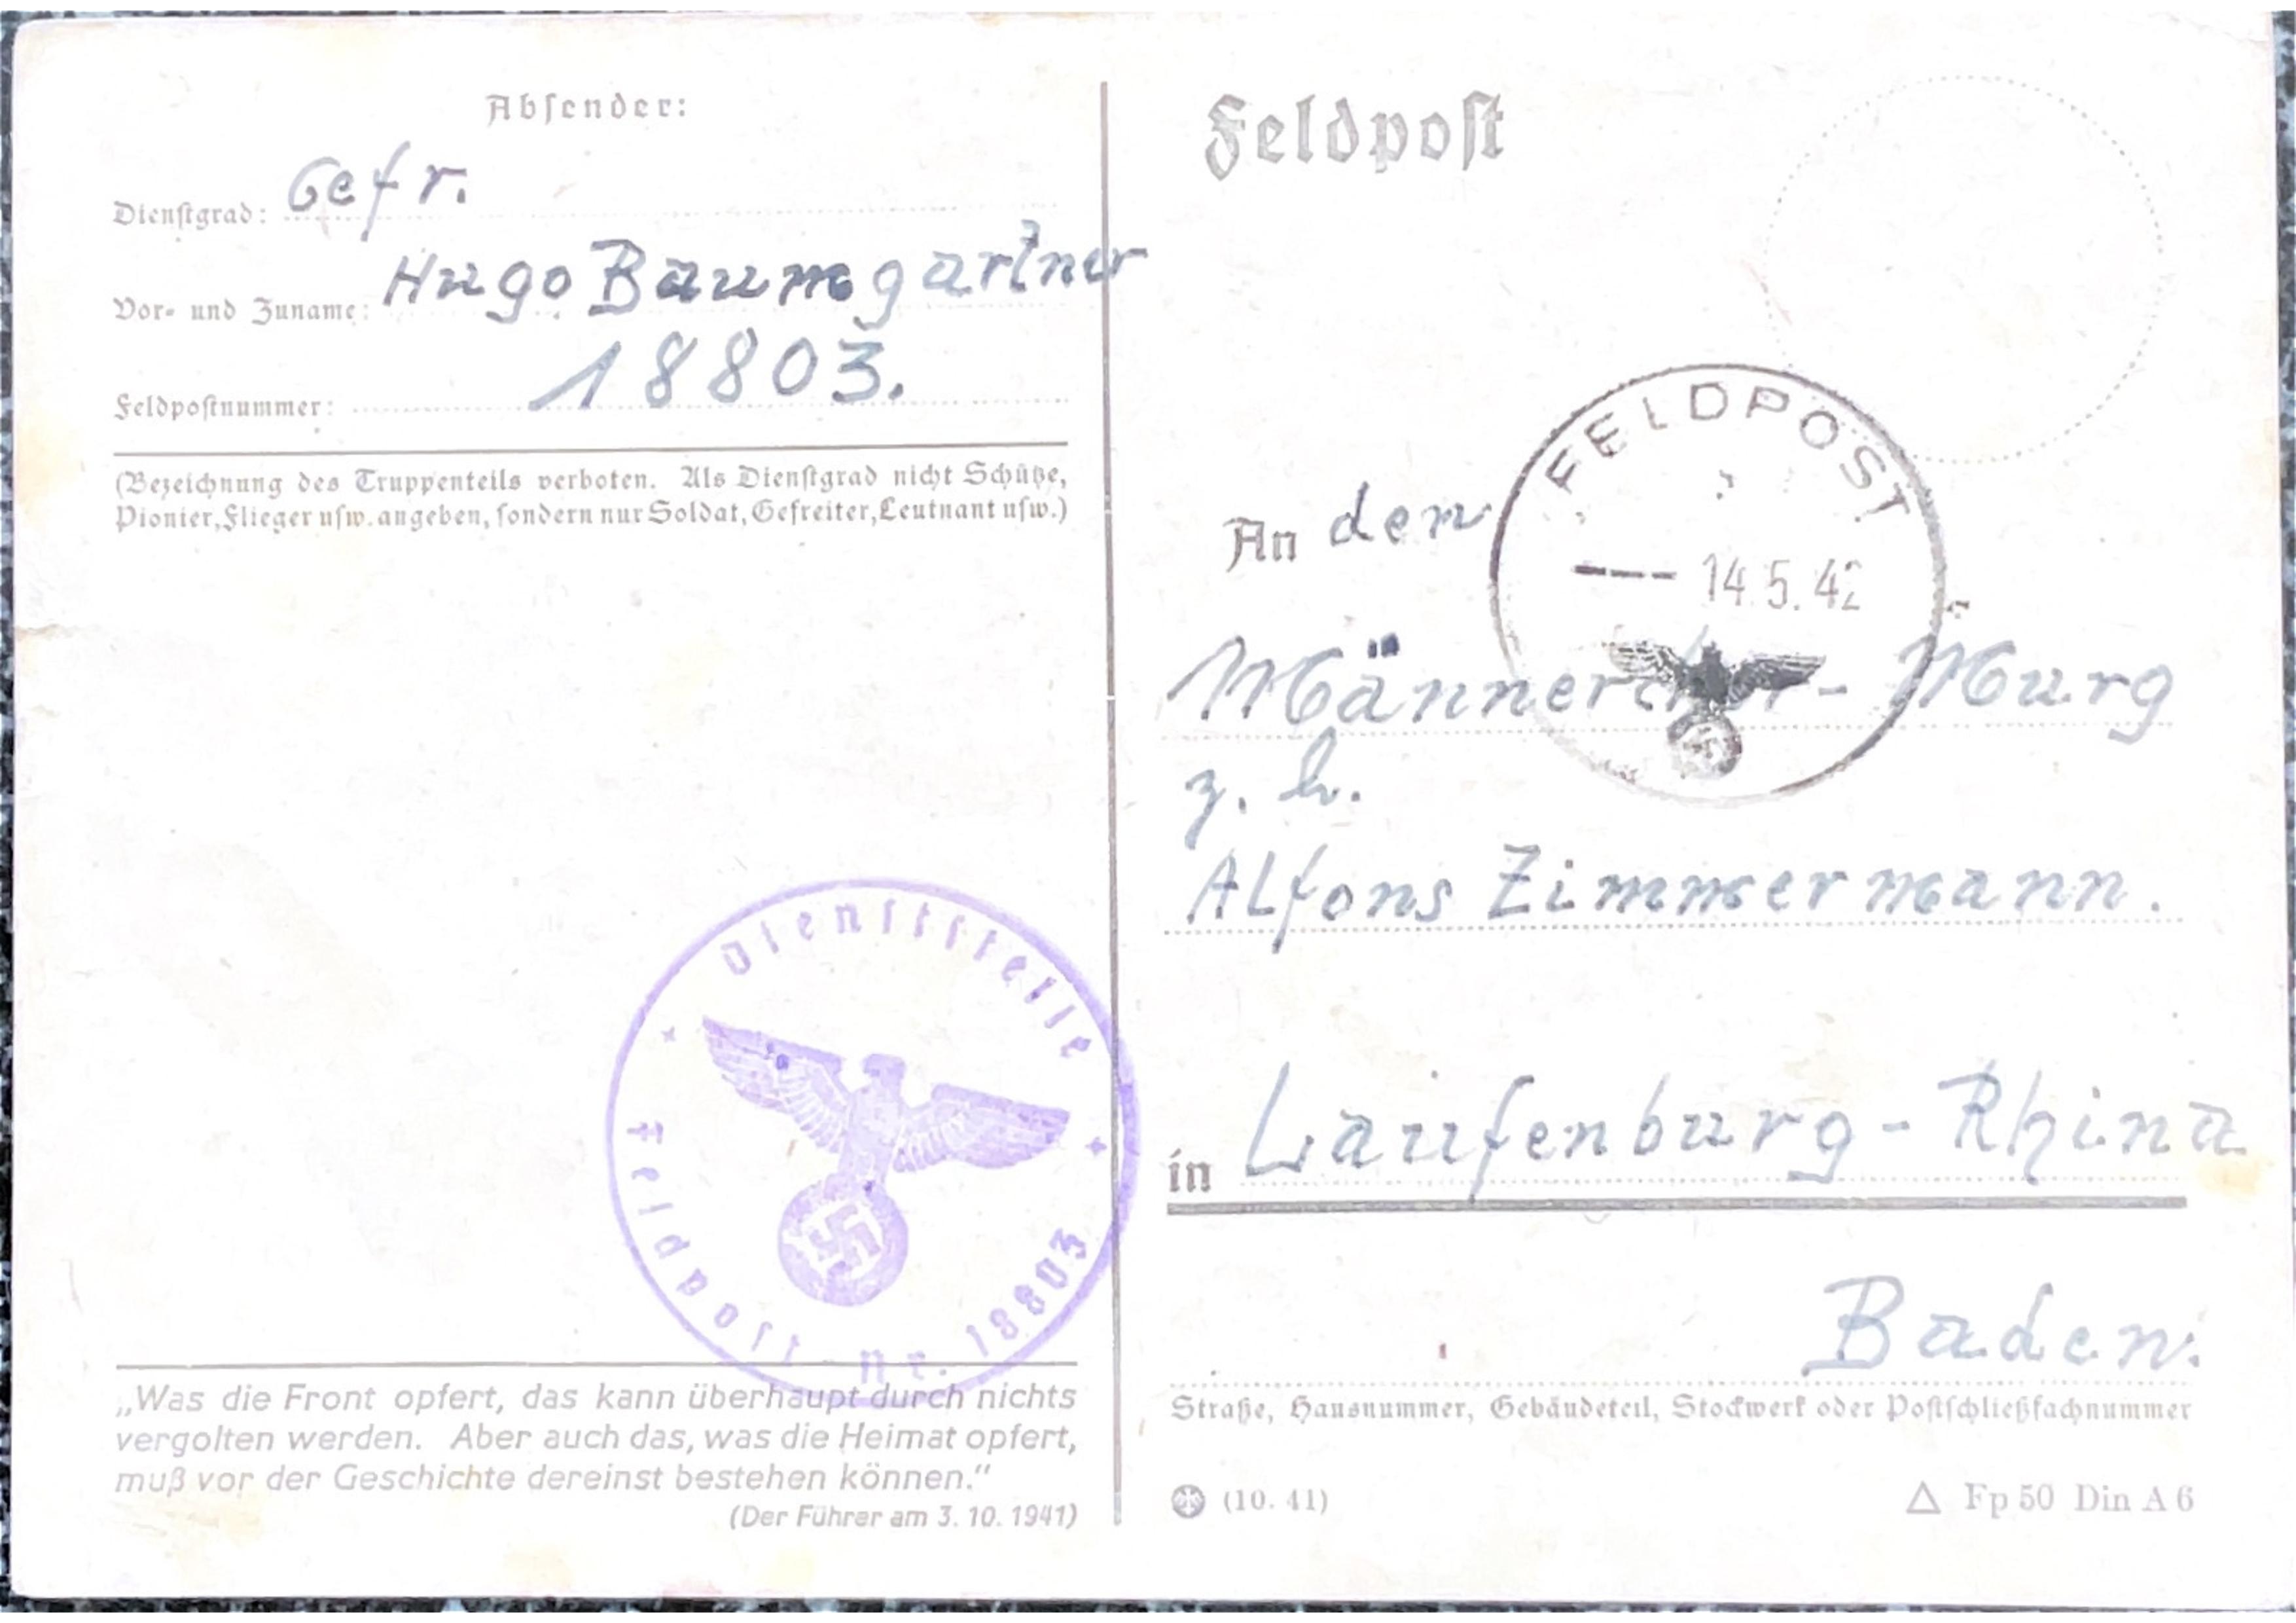 Absender:
Dienstgrad: Gefr.
Vor- und Zuname: Hugo Baumgartner
Feldpostnummer: 18803.
(Bezeichnung des Truppenteils verboten. Als Dienstgrad nicht Schütze,
Pionier, Flieger usw. angeben, sondern nur Soldat, Gefreiter, Leutnant usw.)
Dienststelle
Feldpost Nr. 18803
„Was die Front opfert, das kann überhaupt durch nichts
vergolten werden. Aber auch das, was die Heimat opfert,
muß vor der Geschichte dereinst bestehen können.“
(Der Führer am 3. 10. 1941)
Feldpost
FELDPOST
14.5.42
An den
Männerchor - Murg
z. h.
Alfons Zimmermann.
in Laufenburg - Rhina
Baden.
Straße, Hausnummer, Gebäudeteil, Stockwerk oder Postschließfachnummer
(10. 41)
Fp 50 Din A 6